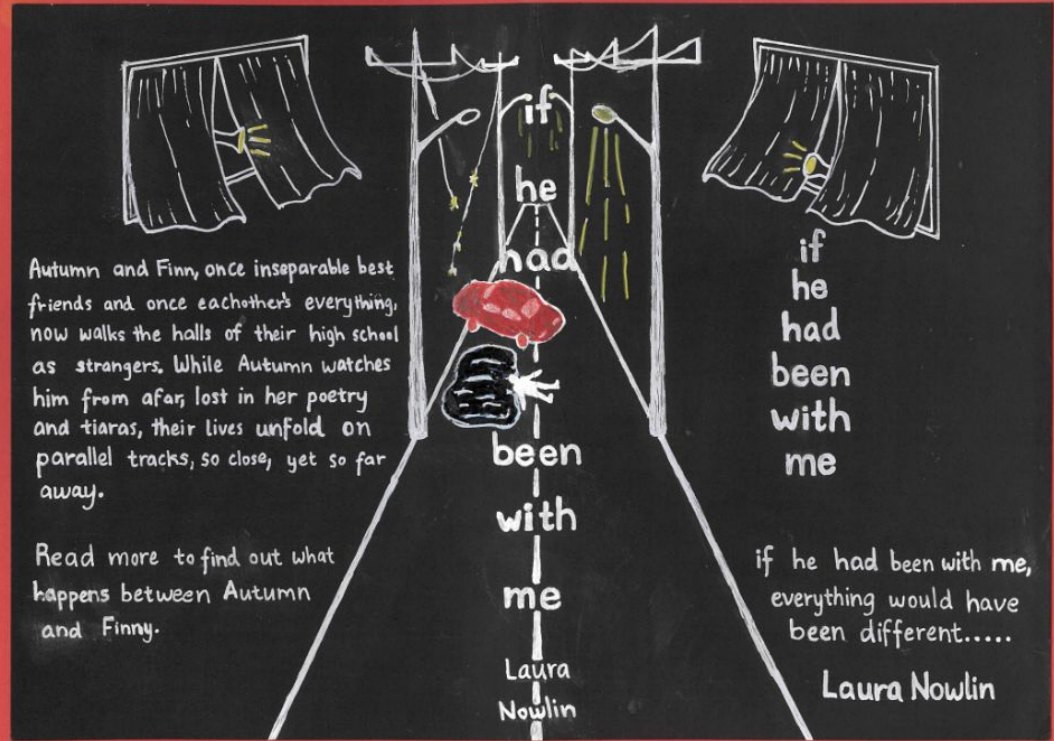 Autumn and Finn, once inseparable best
friends and once eachother's everything,
now walks the halls of their high school
as strangers. While Autumn watches
him from afar, lost in her poetry
and tiaras, their lives unfold on
parallel tracks, so close, yet so far
away.
Read more to find out what
happens between Autumn
and Finny.
if
he
had
been
with
me
Laura
Nowlin
if
he
had
been
with
me
if he had been with me,
everything would have
been different.....
Laura Nowlin